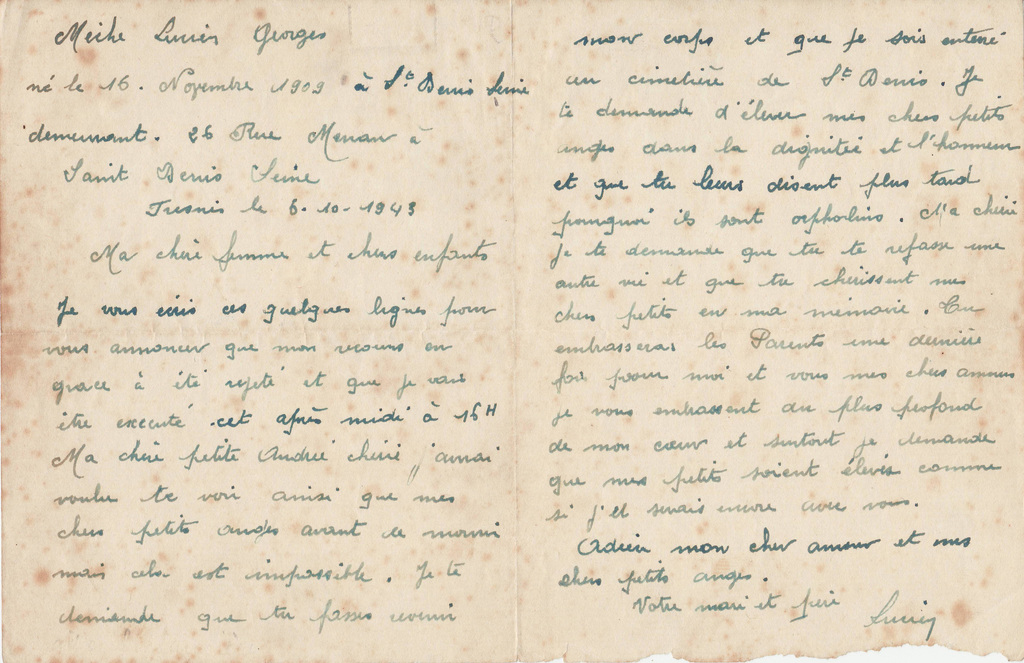 Miche Lucien Georges
né le 16. Novembre 1909 à St Denis Seine
demeurant. 26 Rue Menan à
Saint Denis Seine
Fresnis le 6-10-1943
Ma chère femme et chers enfants
Je vous écris ces quelques lignes pour
vous annoncer que mon recours en
grace à été rejeté et que je vais
être executé cet après midi à 16H
Ma chère petite Andrée chérie j'aurai
voulu te voir ainsi que mes
chers petits anges avant de mourir
mais cela est impossible. Je te
demande que tu fasses revenir
mon corps et que je sois enterré
au cimetière de St Denis. Je
te demande d'élever mes chers petits
anges dans la dignitée et l'honneur
et que tu leurs disent plus tard
pourquoi ils sont orphelins. Ma chérie
je te demande que tu te refasse une
autre vie et que tu chérissent mes
chers petits en ma mémoire. Tu
embrasseras les Parents une dernière
fois pour moi et vous mes chers amours
je vous embrassent du plus profond
de mon cœur et surtout je demande
que mes petits soient élevés comme
si j'et serais encore avec vous.
Adieu mon cher amour et mes
chers petits anges.
Votre mari et père
Lucien